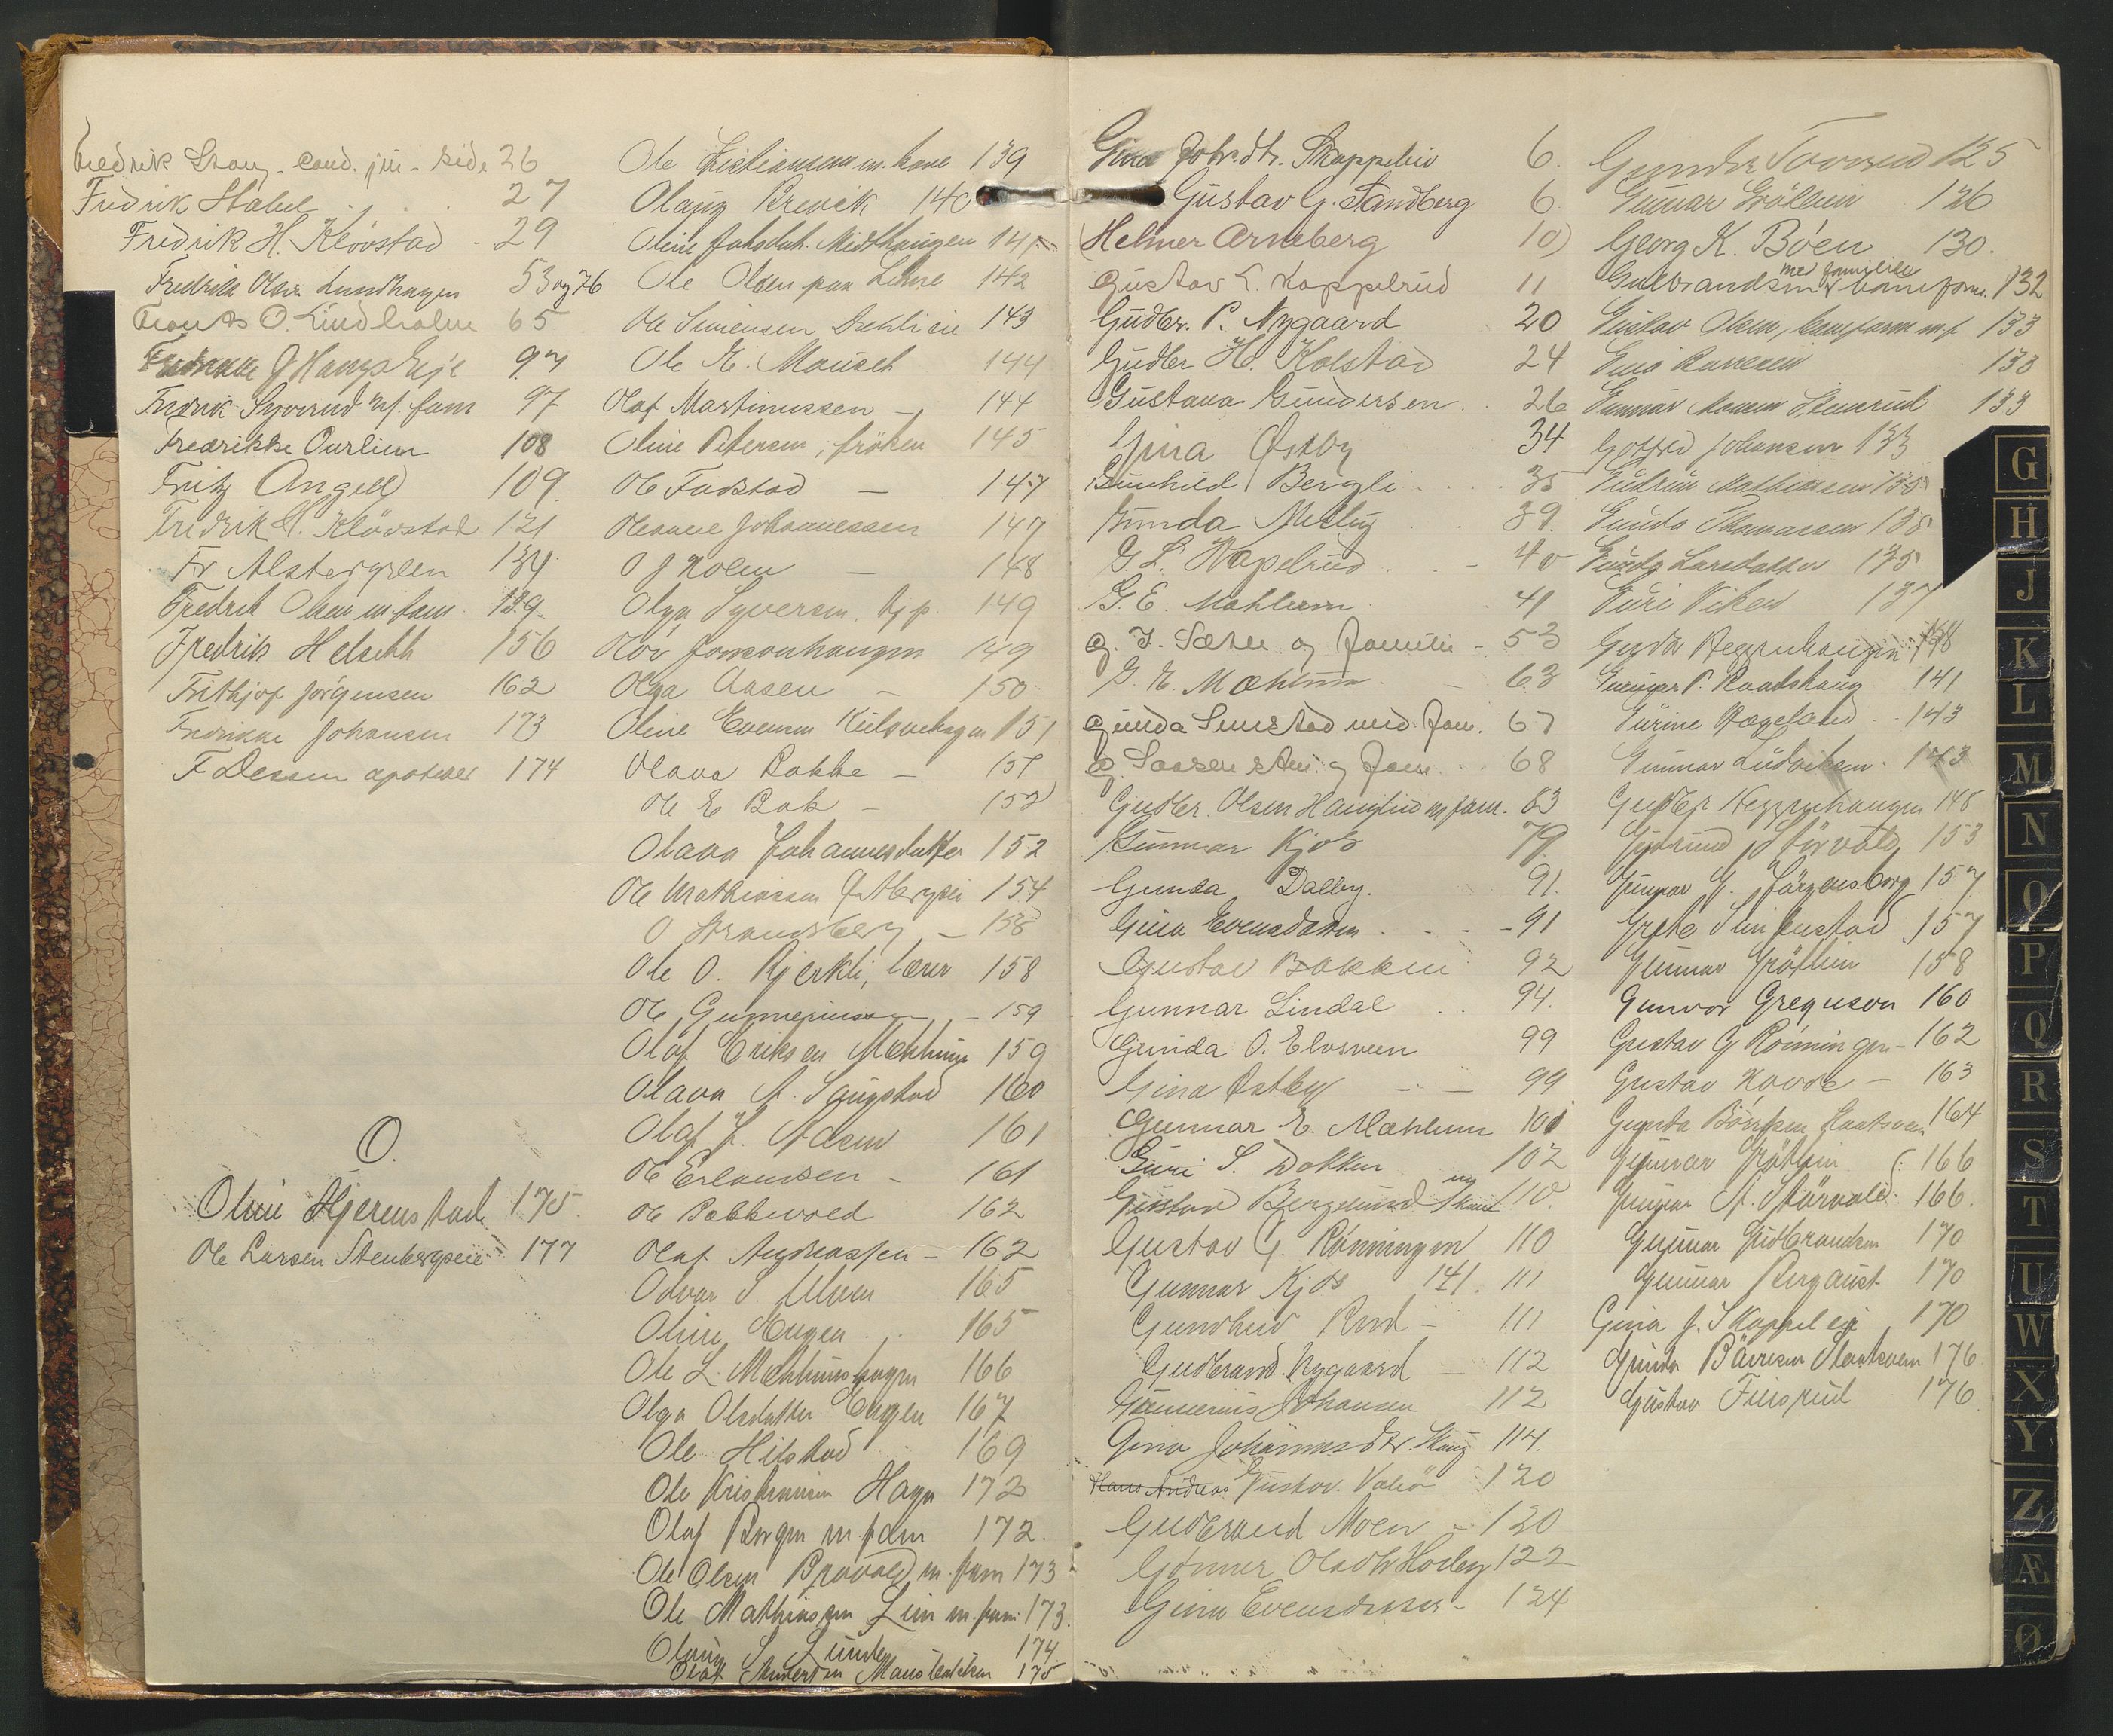 Fredrik Stang - cand. jur - side 26
Fredrik Stabel 27
Fredrik H. Klövstad - 29
Fredrik Olsen Lundhagen 53 og 76
O. Lindholm 65
97
Fredrik Syverud m/ fam 97
Fredrikke Ourlien 108
Fritz Angell 109
Fredrik H. Klövstad 121
Fr Alstergreen 134
Fredrik Olsen m fam. 139
Fredrik Helseth 156
Frithjof Jörgensen 162
Fredrikke Johansen 173
F apoteker 174
O.
Oline Hjerenstad 175
Ole Larsen Stenbergseie 177
Ole Kristiansen m. kone 139
Olaug Brevik 140
Oline Johsdat. Midthaugen 141
Ole Olsen paa 142
Ole Simensen Dehli eie 143
Ole E. Mauset 144
Olaf Martinussen - 144
Oline Petersen, fröken 145
Ole Fadstad - 147
Oleanne Johannessen 147
O J Holen - 148
Olga Syversen 149
149
Olga Aasen - 150
Oline Evensen 151
Olava Bakke - 151
Ole E Bak - 152
Olava Johannesdatter 152
Ole Mathiassen 154
O Strandberg - 158
Ole O. Bjerkli, lærer 158
Ole Gunneriussen - 159
Olaf Eriksen Mæhlum 159
Olava A. Saugstad 160
Olaf J. Aasen 161
Ole Erlandsen - 161
Ole Bakkevold 162
Olaf Andreassen - 162
Odvar S. Moen 165
Oline Engen 165
Ole L. Mæhlumshagen 166
Olga Olsdatter Engen 167
Ole Hilstad 169
Ole Kristiansen Hagen 172
Olaf Bergen m. fam 172.
Ole Olsen Bravold m. fam 173
Ole Mathiassen Lien m. fam 173.
Olaug S Lunde 174
Olaf Andersen 175
Gina Johsdtr. Skappeleie 6.
Gustav G. Sandberg 6
(Helmer Arneberg 10)
Gustav L. Koppelrud 11
Gudbr. P. Nygaard 20
Gudbr H. Kolstad 24
Gustava Gundersen 26
Gina Østby 34
Gunhild Bergli 35
Gunda Melby 39.
G. L. Kopelrud 40
G. E. Mæhlum 41
G. I. Sæter og familie - 53
G. E. Mæhlum 63
Gunda Simstad med fam. 67
G. Laasen og fam. 68
Gudbr. Olsen m fam. 83
Gunnar Kjos 79.
Gunda Dalby. 91.
Gina Evensdatter 91
Gustav Bakken 92
Gunnar Lindal 94.
Gunda O. Elvsveen 99
Gina Østby - - 99
Gunnar E. Mæhlum 101
Guri S. Dokken 102
Gustav Bergelund 110
Gustav G. Rönningen 110
Gunnar Kjos 141. 111
Gundhild Rud - 111
Gudbrand Nygaard - 112
Gunnerius Johansen 112
Gina Johannesdtr. Skaug 114.
Hans Andreas Gustav. Valiö 120
Gudbrand Moen - 120
Gunner 122
Gina Evensdatter - 124
Gunda 125
Gunnar Grötlien 126
Georg K. Böen 130.
med familie
Gulbrandsen 132
Gustav Olsen, m f 133
133
Gunnar Stenrud 133
Gotfred Johansen 133
Gudrun Mathiesen 135
Gunda Thomassen 135
Gunda Larsdatter 135
Guri Viken 137
Gyda Heggenhaugen 138
Gunnar P. Raadshaug 141
Gurine Hageland 143
Gunnar Ludviksen 143
Gudbr Heggenhaugen 148
Gudrund Störvold 153
Gunnar G. Jörgensborg 157
Grete Simenstad 157
Gunnar Grötlien 158
Gunvor Greguson 160
Gustav G Rönningen - 162
Gustav Hovde - 163
Gunda Slaatsveen 164
Gunnar Grötlien 166
Gunnar A. Störvold 166.
Gunnar Gudbrandsen 170
Gunnar Bergaust 170
Gina J. Skappel eie 170
Gunda Slaatsveen 176
Gustav Finsrud 176
G
H
J
K
L
M
N
O
P
Q
R
S
T
U
W
X
Y
Z
Æ
Ø